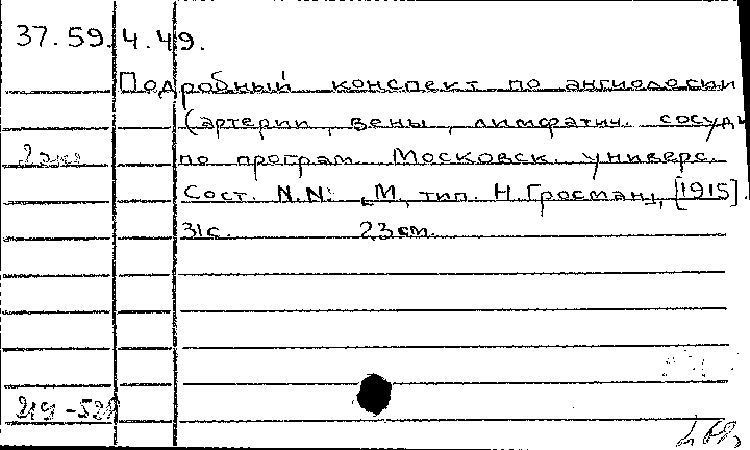 37.59.4.49.
Подробный конспект по ангиологии
(артерии, вены, лимфатич. сосуды
2 экз
по програм. Московск. универс.
Сост. N.N: М, тип. Н.Гросман, [1915].
31с. 23см.
219-521